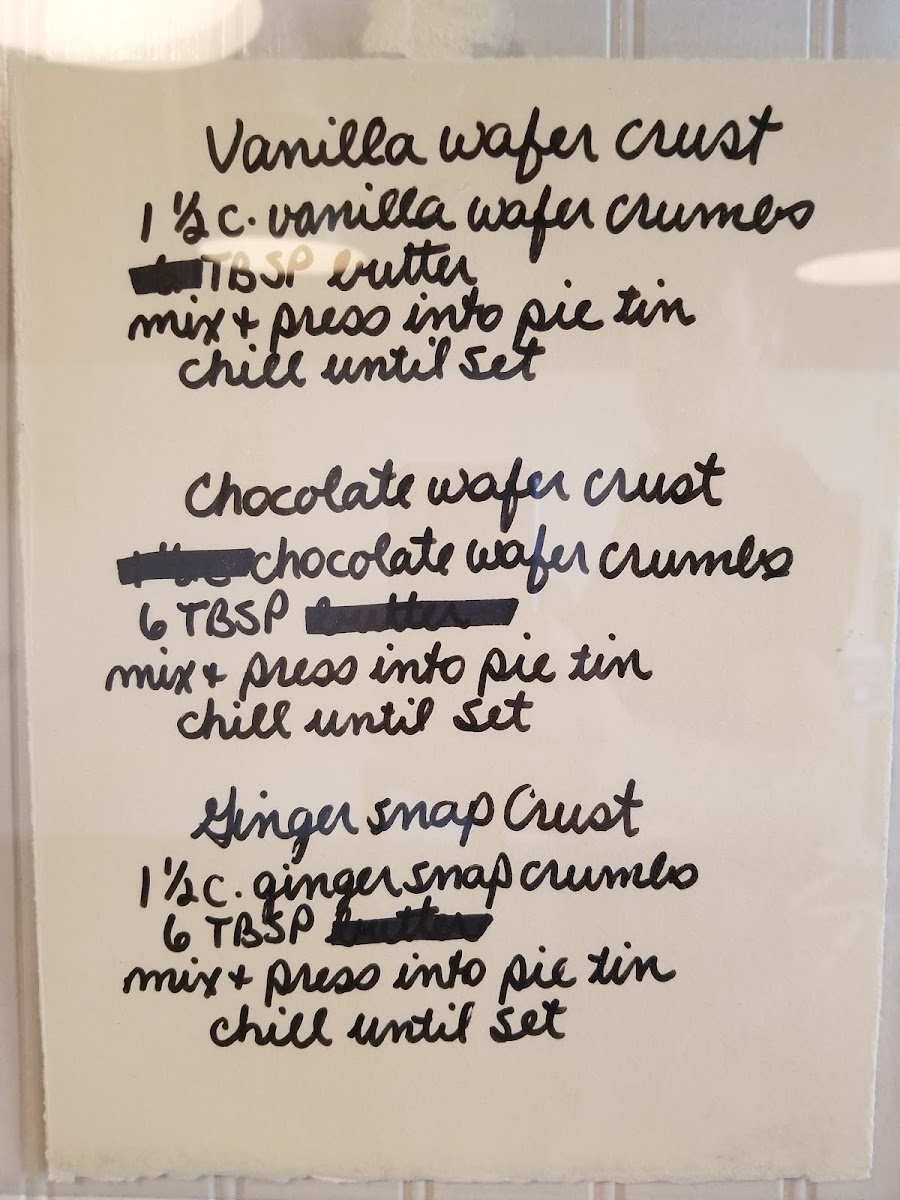 Vanilla wafer crust
1 ½ c. vanilla wafer crumbs
TBSP butter
mix + press into pie tin
chill until set
Chocolate wafer crust
chocolate wafer crumbs
6 TBSP
mix + press into pie tin
chill until set
Ginger snap Crust
1 ½ c. ginger snap crumbs
6 TBSP
mix + press into pie tin
chill until set